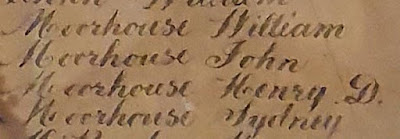 William
Moorhouse William
Moorhouse John
Moorhouse Henry D.
Moorhouse Sydney